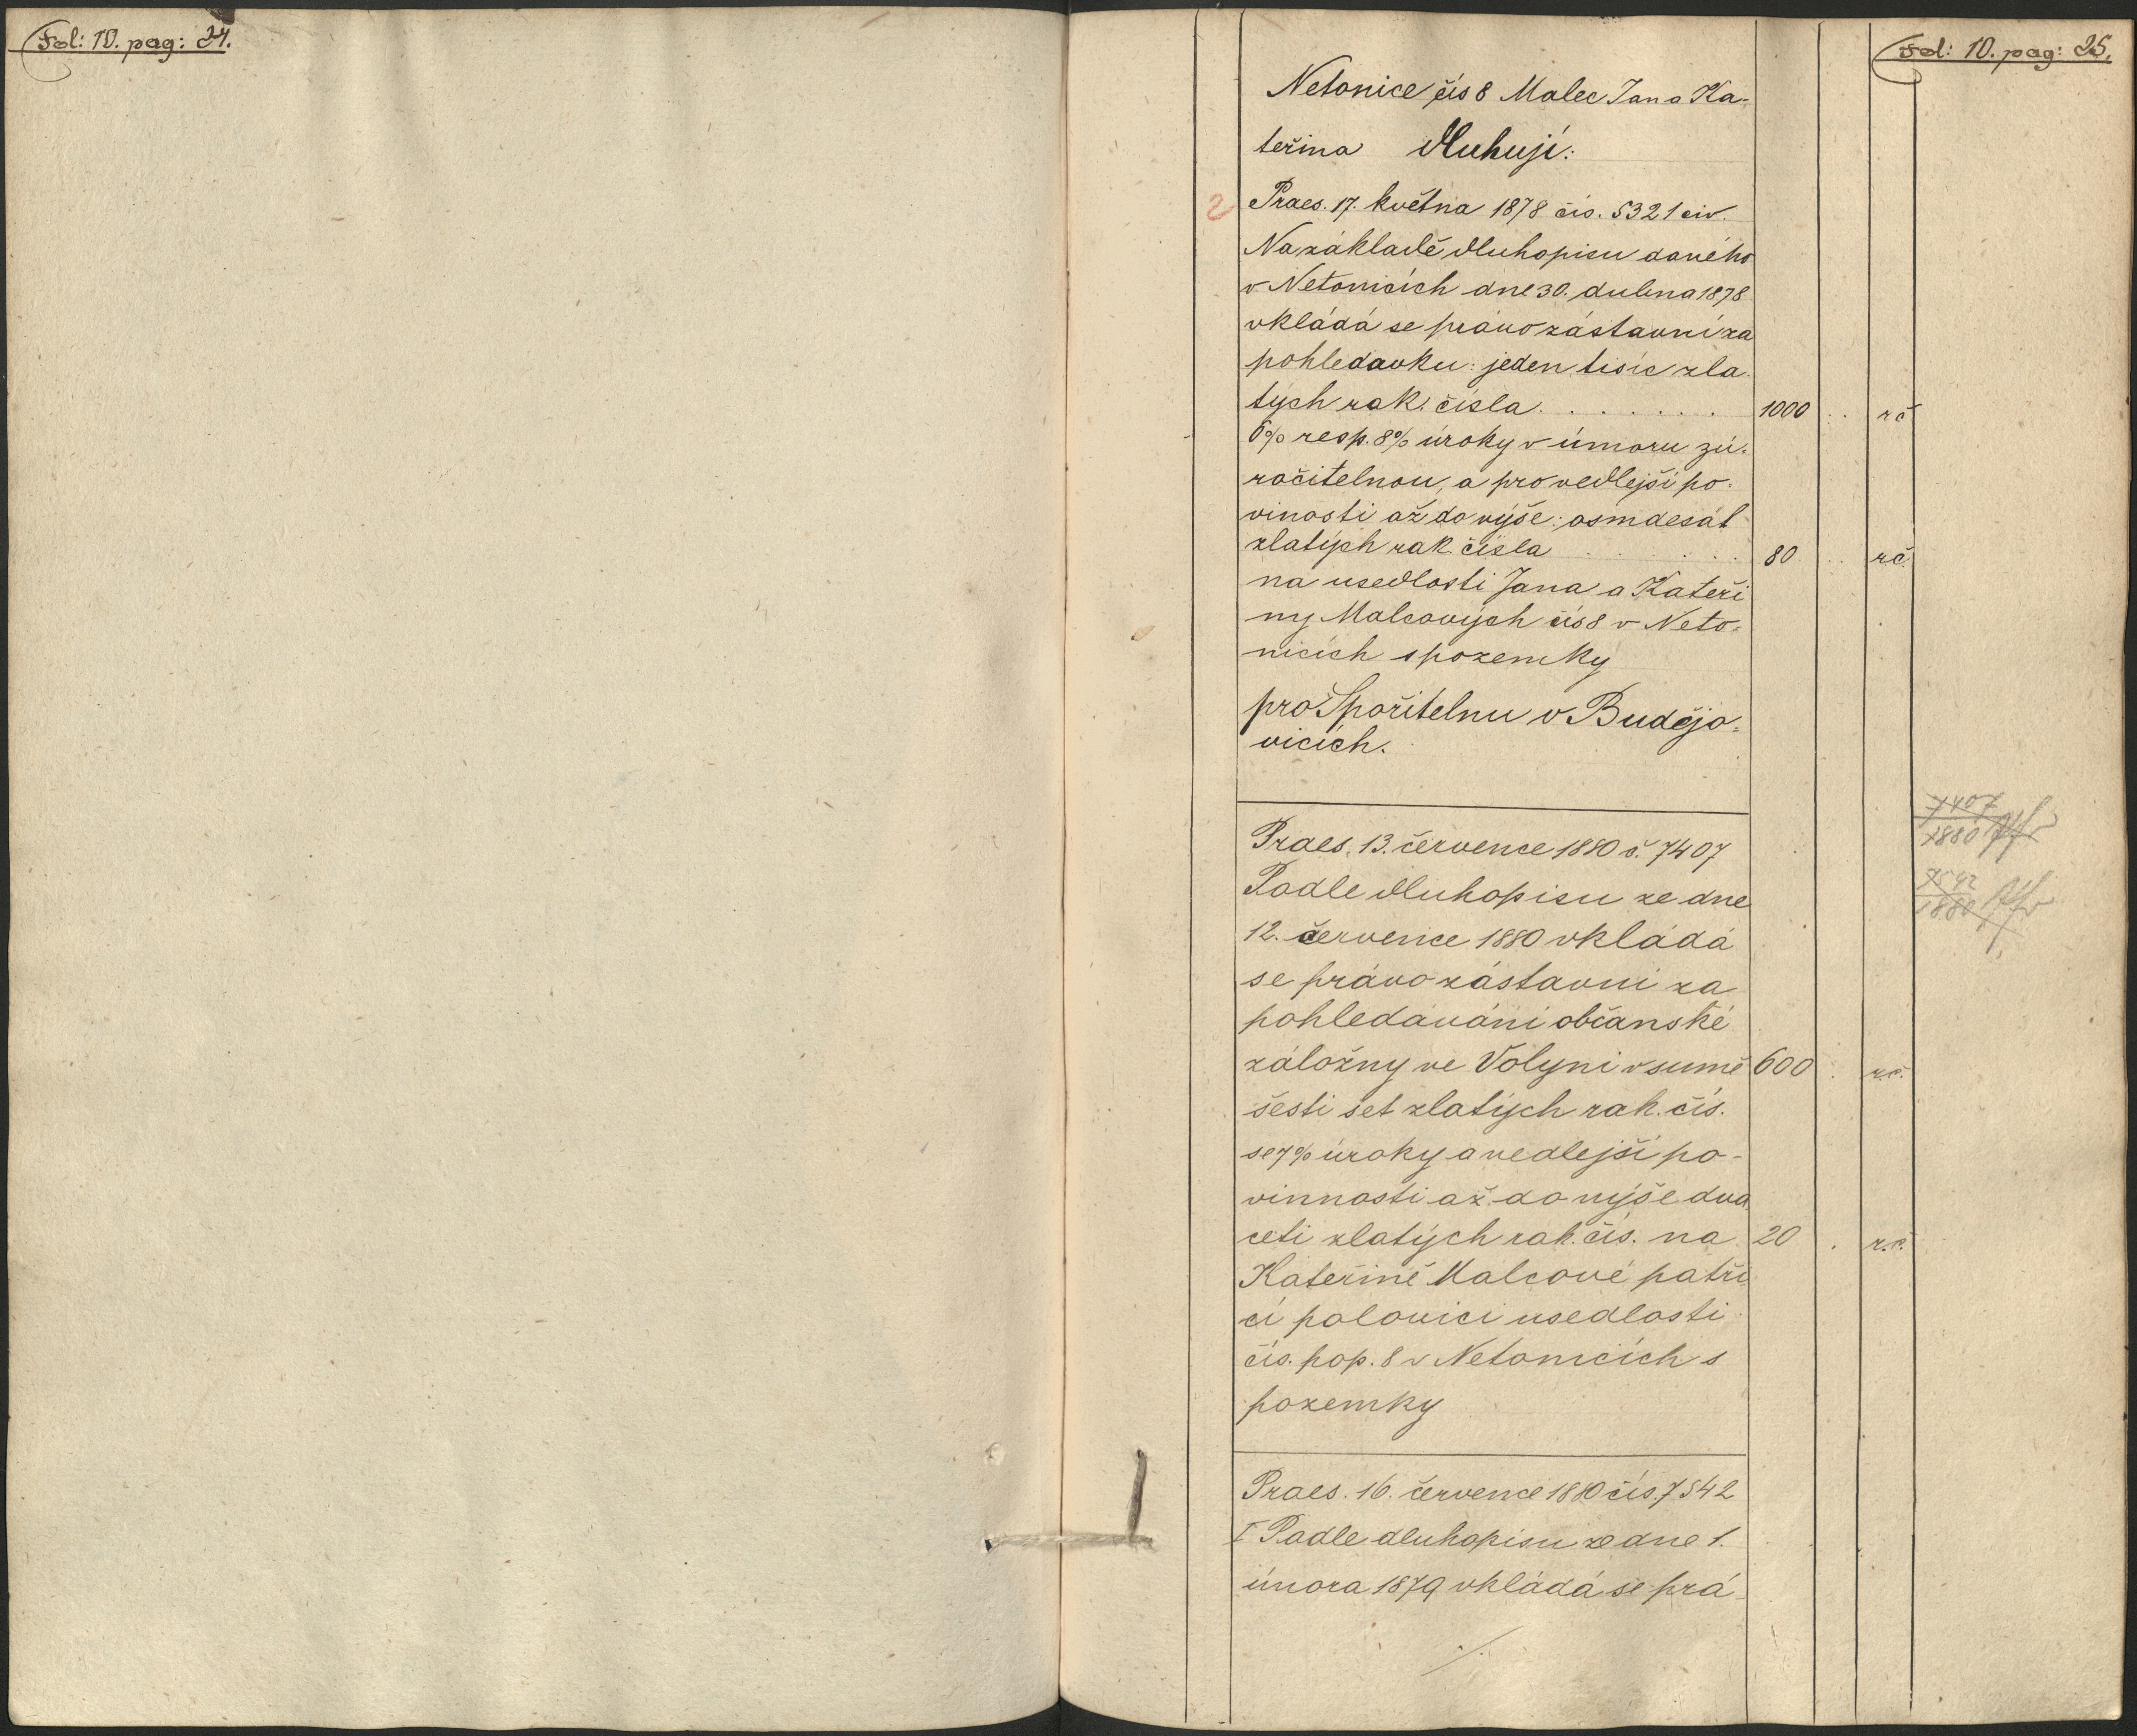 Fol: 10. pag: 24.
Fol: 10. pag: 25.
Netonice čís 8 Malec Jan a Ka-
teřina dluhují:
2 Praes. 17. května 1878 čís. 5321 civ.
Na základě dluhopisu daného
v Netonicích dne 30. dubna 1878
vkládá se právo zástavní za
pohledavku: jeden tisíc zla
tých rak. čísla . . . . . . . 1000 . . rč
6% resp. 8% úroky v úmoru zú-
ročitelnou, a pro vedlejší po-
vinosti až do výše: osmdesát
zlatých rak. čísla . . . . . . 80 . . rč.
na usedlosti Jana a Kateři
ny Malcových čís 8 v Neto-
nicích s pozemky
pro Spořitelnu v Budějo-
vicích.
Praes. 13. července 1880 č. 7407
7407
1880
Podle dluhopisu ze dne
7542
1880
12. července 1880 vkládá
se právo zástavní za
pohledávání občanské
záložny ve Volyni v sumě 600 . r.č.
šesti set zlatých rak. čís.
se 7% úroky a vedlejší po-
vinnosti až do výše dva
ceti zlatých rak. čís. na 20 . r.č.
Kateřině Malcové patří
cí polovici usedlosti
čís. pop. 8 v Netonicích s
pozemky
Praes. 16. července 1880 čís. 7542
I Podle dluhopisu ze dne 1.
února 1879 vkládá se prá
./.